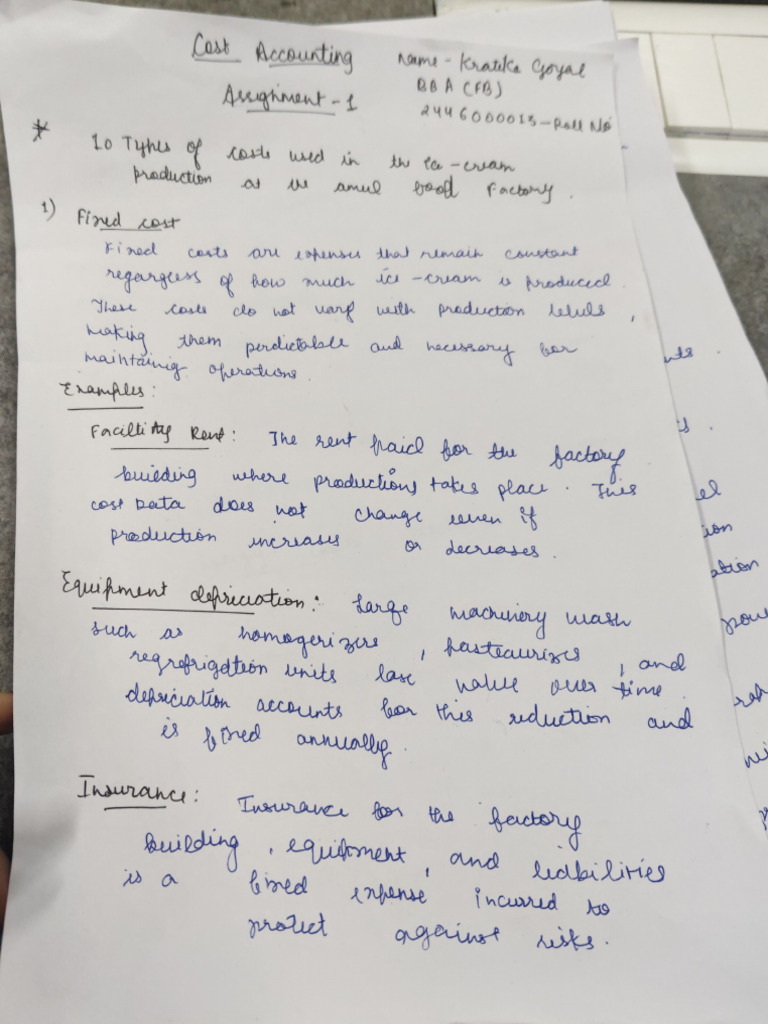 Cost Accounting
Name - Kratika Goyal
BBA (FB)
Assignment - 1
2446000013 - Roll No
* 10 Types of costs used in the Ice-cream
production at the amul food Factory.
1) Fixed cost
Fixed costs are expenses that remain constant
regargless of how much ice-cream is produced.
These costs do not vary with production levels,
making them perdictable and necessary for
maintainig operations.
Examples:
Facility Rent: The rent paid for the factory
building where productions takes place. This
cost Data does not change even if
production increases or decreases.
Equipment depriciation: Large machinery
such as homogerizers, pasteaurizes, and
units lose value over time
depriciation accounts for this reduction and
is fixed annually.
Insurance: Insurance for the factory
building, equipment, and liabilities
is a fixed expense incurred to
protect against risks.